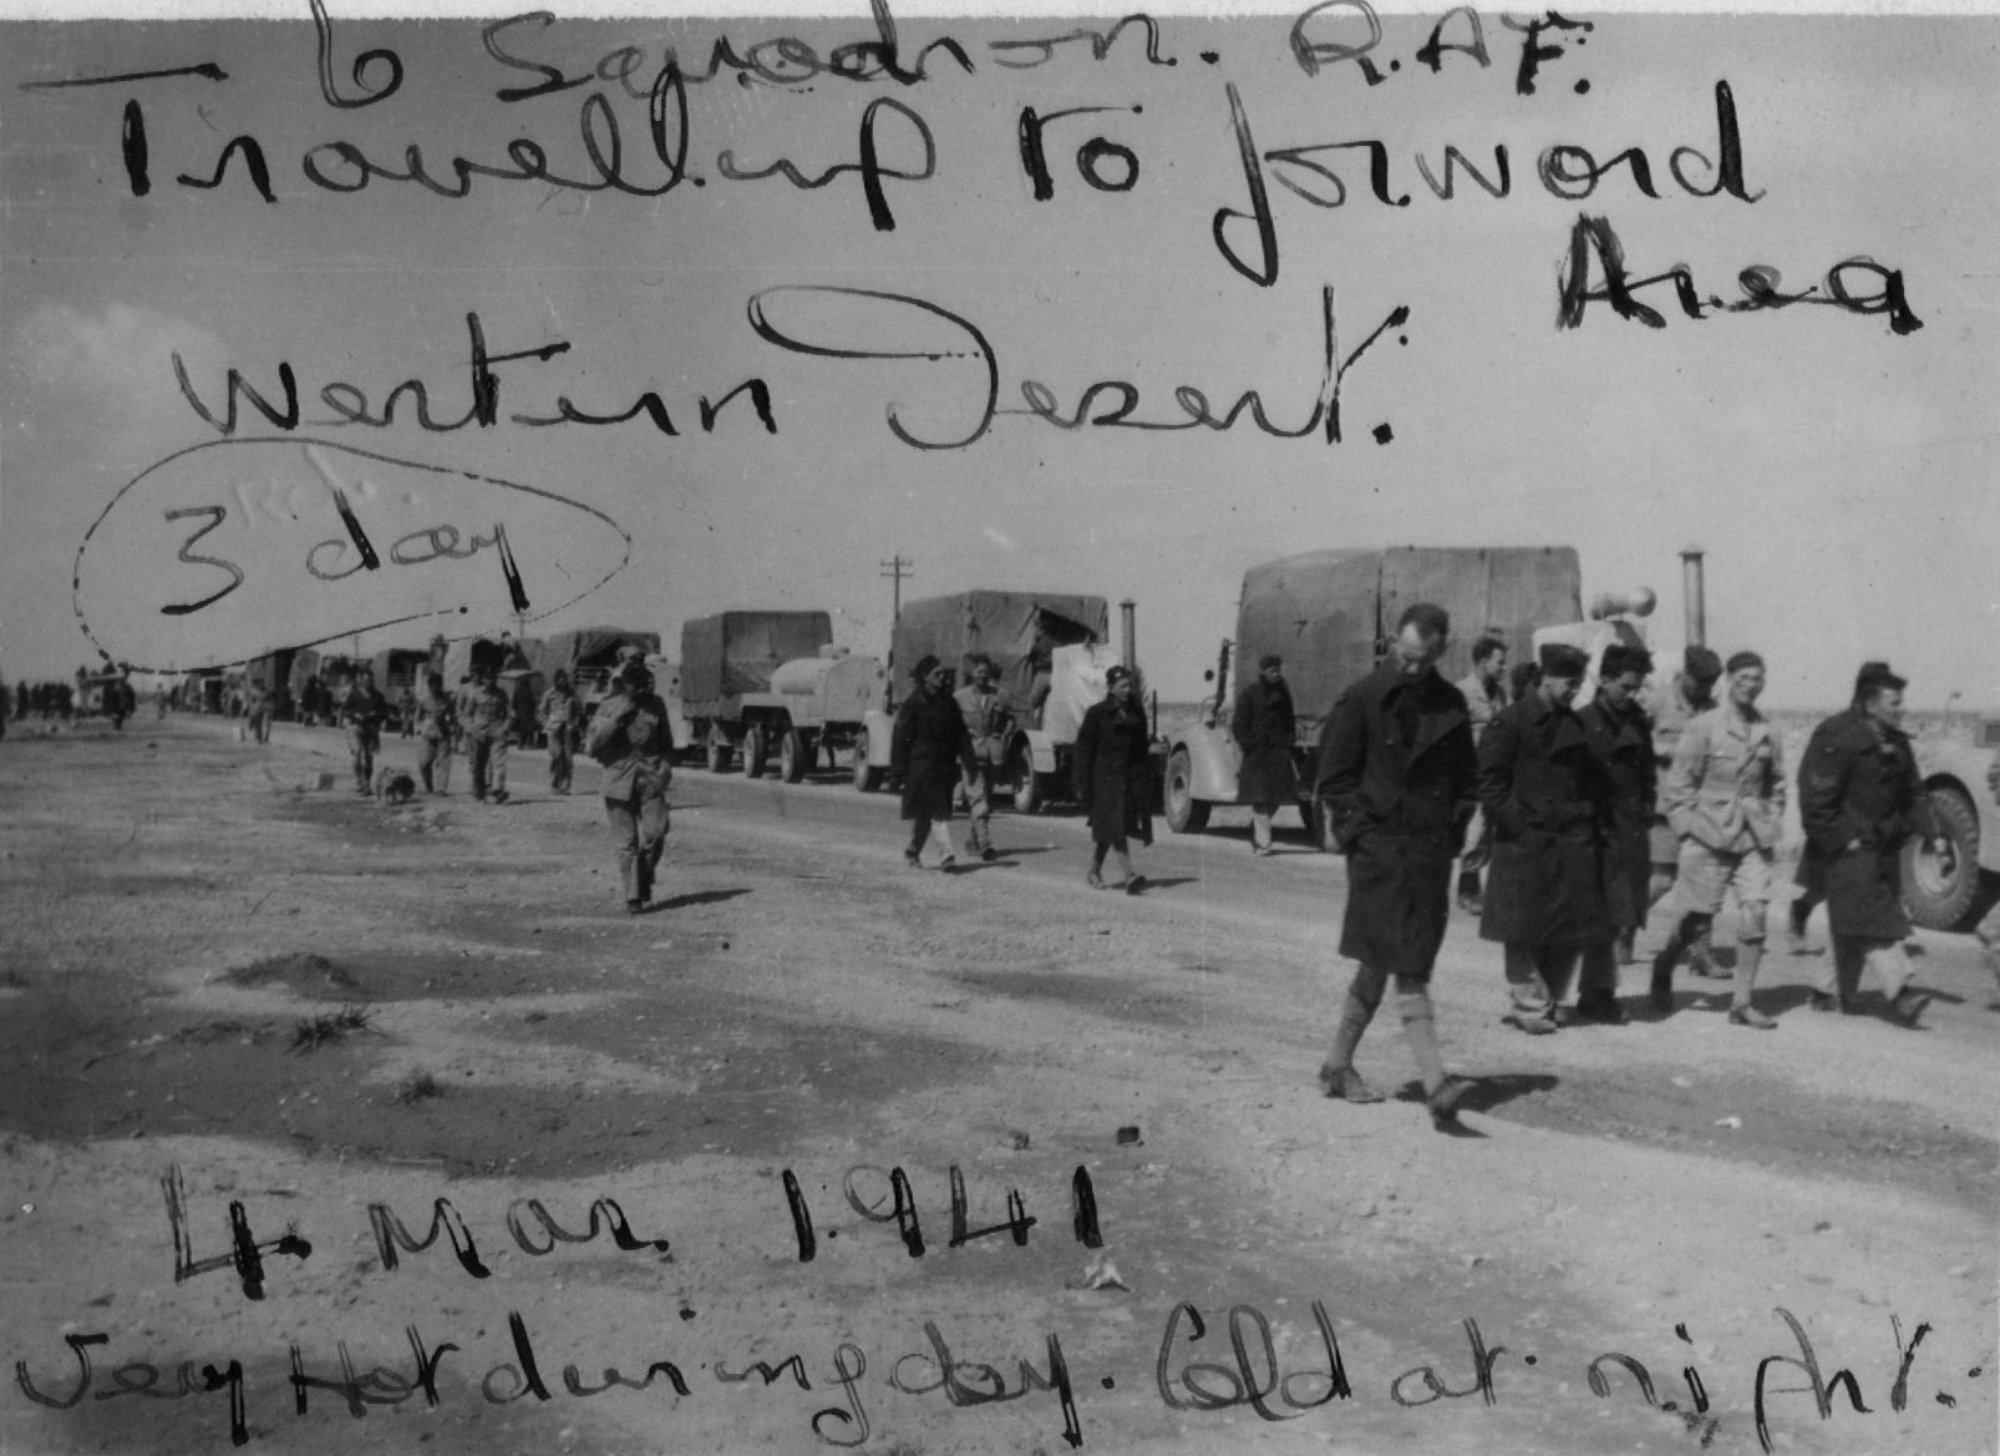 — 6 Squadron. R.A.F.
Travelling to forward
Area
Western Desert.
3 day
4 Mar 1941
Very Hot during day. Cold at night.